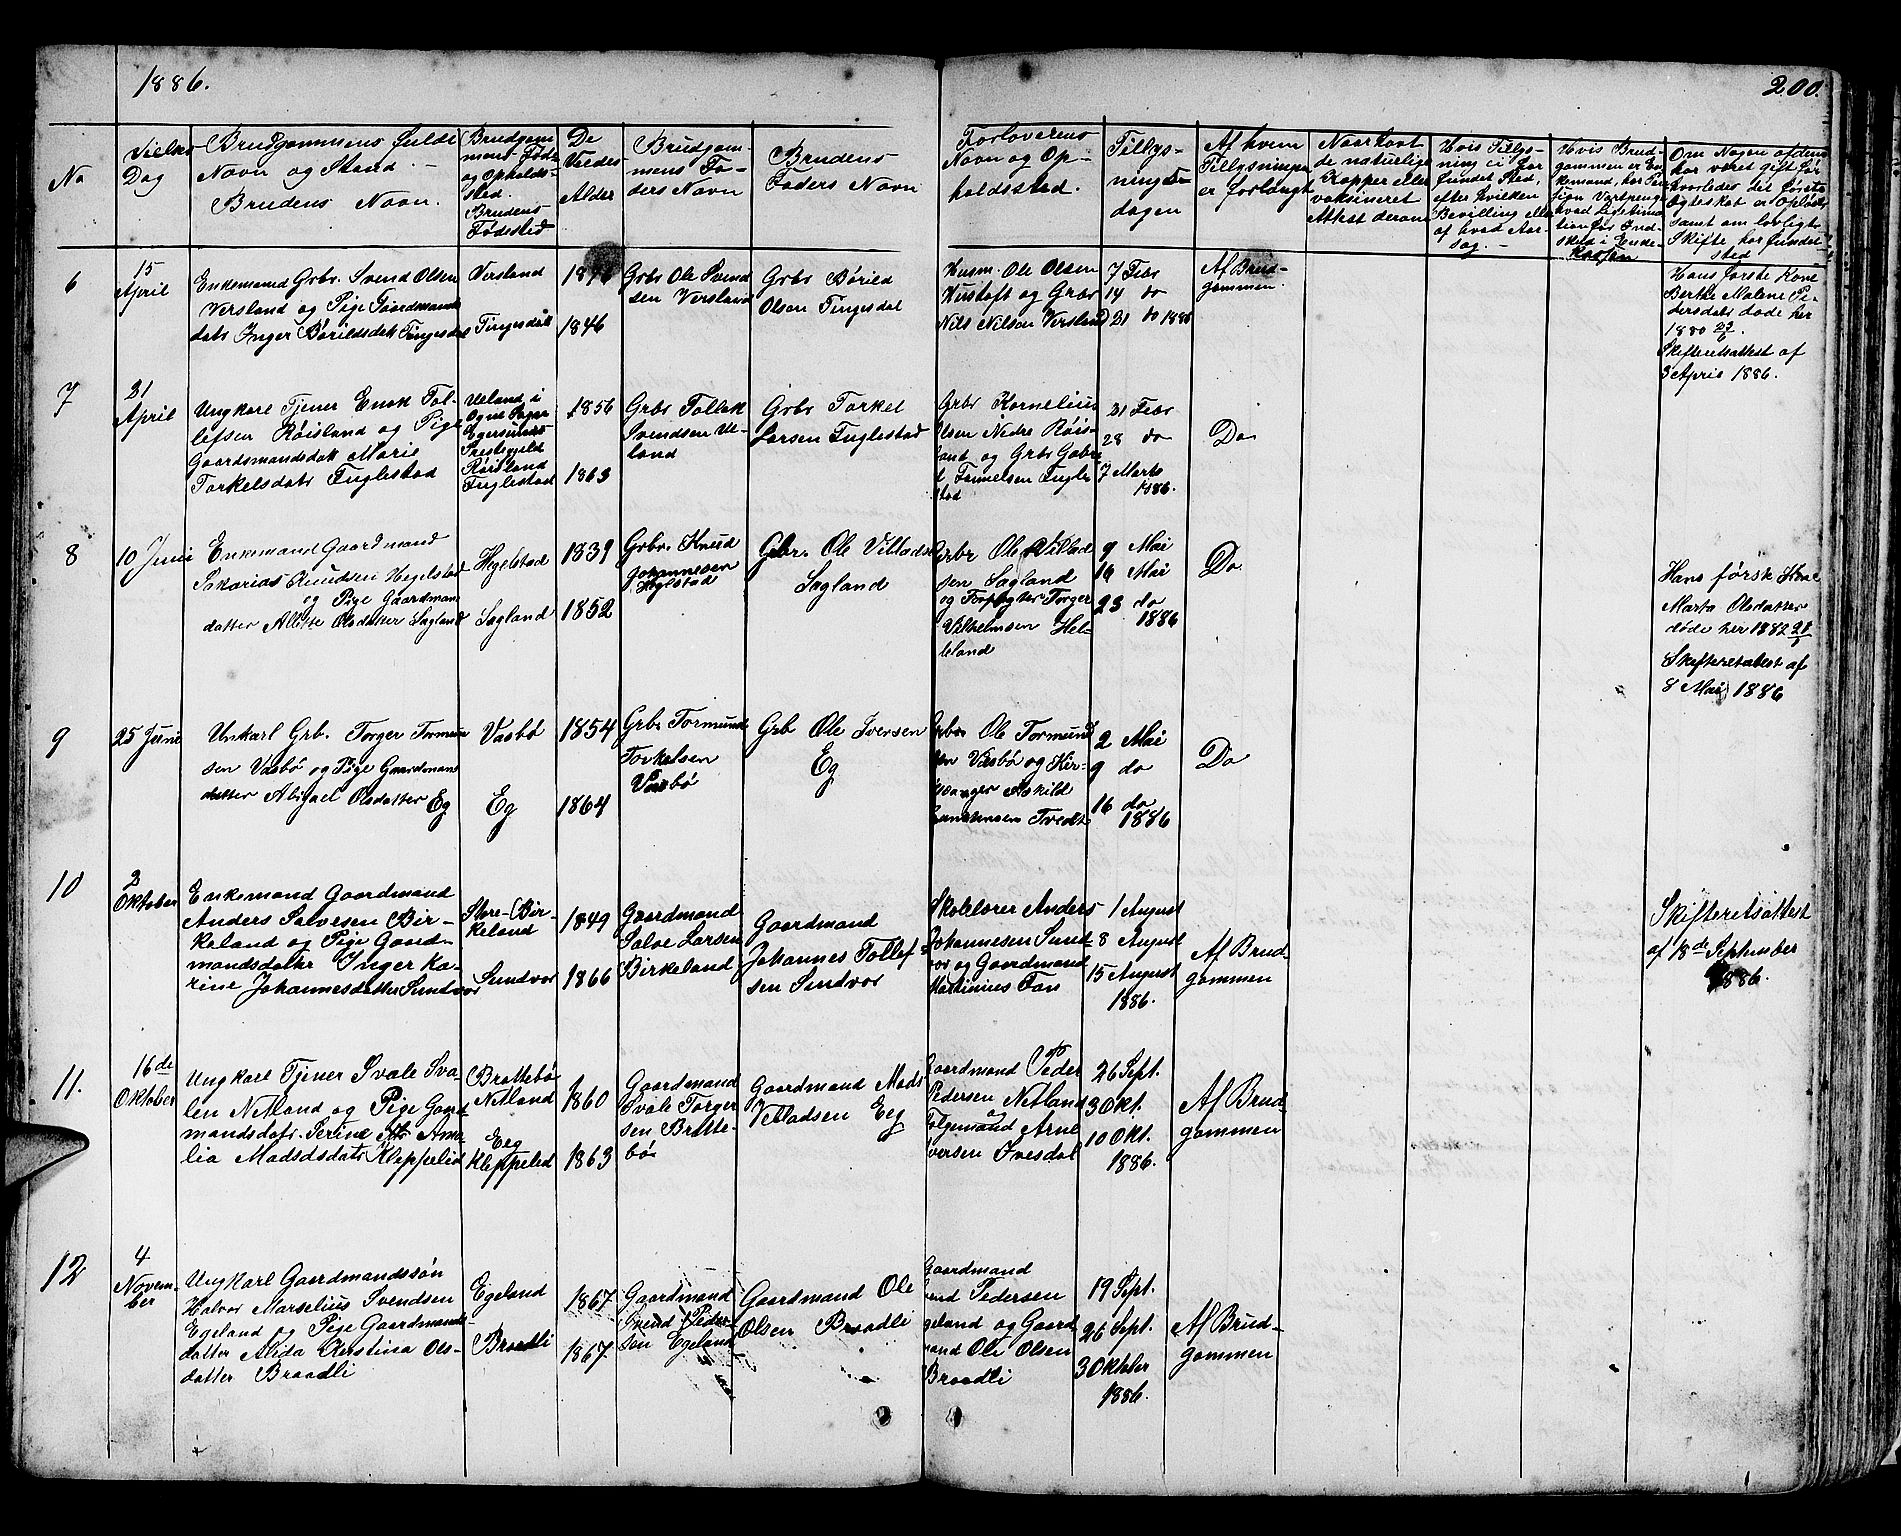 1886.
200.
No
Vielses
Dag
Brudgommens fulde
Navn og Stand. —
Brudens Navn.
Brudgom
mens Føde
og Opholds-
sted.
Brudens
Fødested
De
Viedes
Alder
Brudgom-
mens Fa-
ders Navn
Brudens
Faders Navn
Forloverens
Navn og Op-
holdssted.
Tillys-
nings-
dagen
Af hvem
Tillysningen
er forlangt
Naar havt
de naturlige
Kopper eller
vaksineret
Attest derom
Hvis Tillys-
ning ei har
fundet Sted,
efter hvilken
Bevilling eller
af hvad Aar-
sag. —
Hvis Brud-
gommen er En
kemand, har Pen
sion Vartpenge
hvad Legitima
tion før Ind-
skud i Enke-
kassen
Om Nogen af dem
har været gift før
hvorledes det første
Ægteskab er opløst
samt om lovligt
Skifte har fundet
sted
6
15
April
Enkemand Grbr. Svend Olsen
Versland og Pige Gaardmands
datr Inger Børildsdatr Tingesdal
Versland
Tingesdal
1846
Grbr Ole Svend
sen Versland
Grbr Børild
Olsen Tingesdal
Husm. Ole Olsen
Hustoft og Grbr
Nils Nilsen Versland
7 Febr
14 do
21 do 1886
Af Brud-
gommen.
Hans første Kone
Berthe Malene Pe-
dersdatr døde her
1880
Skifteretsattest af
3 April 1886.
7
21
April
Ungkarl Tjener Enok Tol-
lefsen Røisland og Pige
Gaardsmandsdatr Marie
Torkelsdatr Fuglestad
Ueland i
Ogne Sogn
Egersunds
Prestegjeld
Røisland
Fuglestad
1856
1863
Grbr Tollak
Svendsen Ue-
land
Grbr Torkel
Larsen Fuglestad
Grbr Kornelius
Olsen Nedre Røis-
land og Grbr Gabri
el Tønnesen Fugle
stad
21 Febr
28 do
7 Marts
1886.
Do
8
10 Juni
Enkemand Gaardmand
Sakarias Knudsen Hegelstad
og Pige Gaardman
datter Allette Olsdatter Sagland
Hegelstad
Sagland
1839
1852
Grbr. Knud
Johannesen
Grbr. Ole Villads
Sagland
Grbr Ole Villad
sen Sagland
og Forpagter Torger
Vilhelmsen Hel-
leland
9 Mai
16 Mai
23 do
1886
Do
Hans første Kone
Marta Olsdatter
døde her 1882
Skifteretsattest af
8 Mai 1886
9
25 Juni
Unkarl Grb. Torger Tormun
sen Vasbø og Pige Gaardman
datter Abigael Olsdatter Eg
Vasbø
Eg
1854
1864
Grbr Tormund
Torkelsen
Vasbø
Grb Ole Iversen
Eg
Grbr Ole Tormund
sen Vasbø og Kir-
kesanger Askild
Tvedt
2 Mai
9 do
16 do
1886
Do
10
2
Oktober
Enkemand Gaardmand
Anders Salvesen Bir-
keland og Pige Gaard-
mandsdatter Inger Ka-
rine Johannesdatter Sundvor
Store-Bir-
keland
Sundvor
1849
1866
Gaardmand
Salve Larsen
Birkeland
Gaardmand
Johannes Tollef
sen Sundvor
Skolelærer Anders
Johannesen Sund-
vor og Gaardmand
Martinius Tan
1 August
8 August
15 August
1886.
Af Brud-
gommen
Skifteretsattest
af 18de September
1886.
11.
16de
Oktober
Ungkarl Tjener Svale Sva-
len Netland og Pige Gaard
mandsdatr. Serine Ama-
lia Madsdsdatr Kleppelid
Brattebø
Netland
Eeg
Kleppelid
1860
1863
Gaardmand
Svale Torger
sen Bratte-
bø
Gaardmand Mads
Villadsen Eeg
Gaardmand Peder
Pedersen Netland
og
Følgemand Arne
Iversen Ivesdal
26 Sept.
3 Okt.
10 Okt.
1886.
Af Brud-
gommen
12
4
Novem-
ber
Ungkarl Gaardmandssøn
Halvor Marselius Svendsen
Egeland og Pige Gaardmands-
datter Alida Kerstina Ols-
datter Braadli
Egeland
Braadli
1867
1867.
Gaardmand
Svend Peder-
sen Egeland
Gaardmand Ole
Olsen Braadli
Gaardmand
Svend Pedersen
Egeland og Gaard
mand Ole Olsen
Braadli
19 Sept.
26 Sept.
3 Oktbr
1886.
Af Brud-
gommen